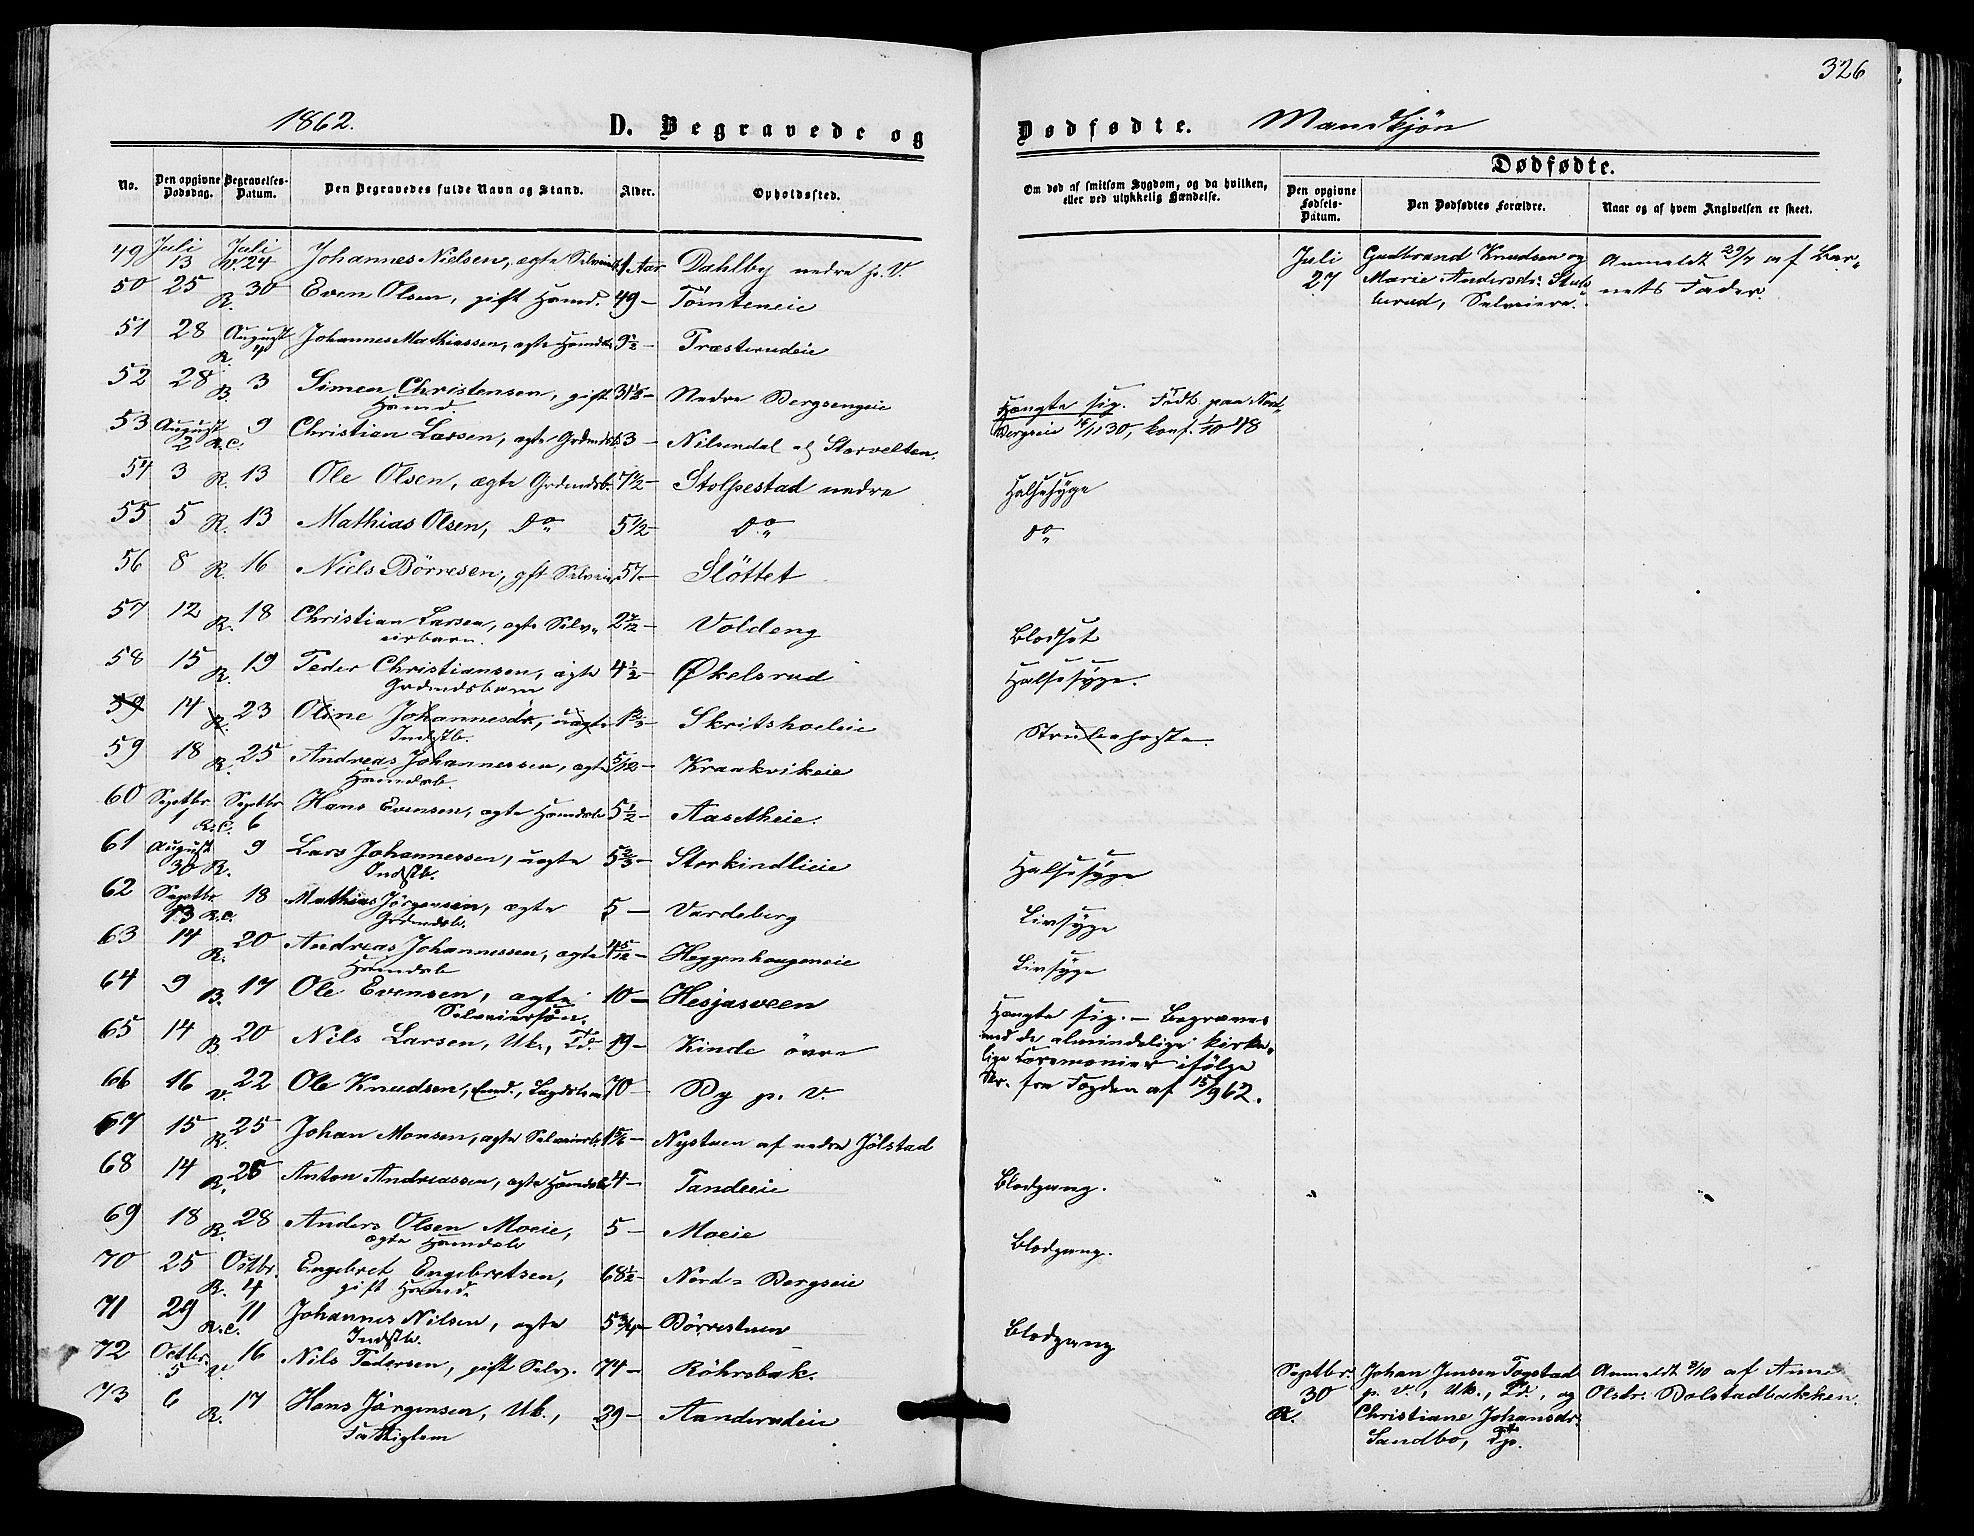 326
1862.
D. Begravede og
Dødfødte. Mandkjøn
Dødfødte.
No.
Den opgivne Dødsdag.
Begravelses-Datum.
Den Begravedes fulde Navn og Stand.
Alder.
Opholdssted.
Om død af smitsom Sygdom, og da hvilken, eller ved ulykkelig Hændelse.
Den opgivne Fødsels-Datum.
Den Dødfødtes Forældre.
Naar og af hvem Angivelsen er skeet.
49 Juli 13 Juli V. 24 Johannes Nielsen, ægte Aar Dahlby nedre p. V.
Juli 27 Gudbrand Knudsen og Marie Andersdr. Selveiere. Anmeldt 29/7 af Barnets Fader.
50 25 R. 30 Even Olsen, gift Husmd. 49 – Tömteneie
51 28 R. August Johannes Mathiassen, ægte Husmdsb. – Træsterudeie
52 28 B. 3 Simen Christensen, gift Husmd. – Nedre Bergsengeie
Hængte sig. Födt paa Nord-Bergseie 30, konf. 1/10 48
53 August 2 R.C. 9 Christian Larsen, ægte Grdmdsb. 3 – Nilsendal af Storvelten.
54 3 R. 13 Ole Olsen, ægte Grdmdsb. 7 1/2 – Stolpestad nedre Halsesyge
55 5 R. 13 Mathias Olsen, Do 5 1/2 Do Do
56 8 R. 16 Niels Börresen, gft Selveier 57 – Slöttet
57 12 R. 18 Christian Larsen, ægte Selveierbarn. – Voldeng Blodsot
58 15 R. 19 Peder Christiansen, ægte Grdmdsbarn 4 1/2 – Økelsrud Halsesyge.
59 14 R. 23 Oline Johannesdr, uægte Indstb. 1 2/3 – Skritshoeleie Strubehoste.
59 18 R. 25 Andreas Johannessen, ægte Husmdsb. 5/12 – Kraakvikeie
60 Septbr 1 R.C. Septbr 6 Hans Evensen, ægte Husmdsb 5 1/2 – Aasetheie.
61 August 30 R. 9 Lars Johannessen, uægte Indstb. 5 2/3 – Storkindlieie Halsesyge
62 Septbr 13 R.C. 18 Mathias Jörgensen, ægte Grdmdsb. 5 – Vardeberg Livsyge
63 14 R. 20 Andreas Johannessen, ægte Husmdsb 4 5/12 – Heggenhaugeneie Livsyge
64 9 B. 17 Ole Evensen, ægte Selveiersön. 10 – Hesjasveen
65 14 B 20 Nils Larsen, Uk., Td. 19 – Kinde övre
Hængte sig. – Begraves med de almindelige kirkelige Ceremonier ifölge Skr. fra Fogden af 15/9 62.
66 16 V. 22 Ole Knudsen, Enkemd., Lægdslem 70 – By p. V.
67 15 R. 25 Johan Monsen, ægte Selveierb. 1 5/6 – Nystuen af nedre Jölstad
68 14 R. 26 Anton Andreassen, ægte Husmdsb 4 – Tandeeie Blodgang.
69 18 R. 28 Anders Olsen Moeie, ægte Husmdsb 5 – Moeie Blodgang.
70 25 R. Octbr. 4 Engebret Engebretsen, gift Husmd. 68 1/2 – Nord-Bergseie
71 29 R.C. 11 Johannes Nilsen, ægte Indstb. 5 3/4 – Börrestuen Blodgang
72 Octbr. 5 V. 16 Nils Pedersen, gift Selv. 74 – Röhrsbak.
Septbr. 30 R. Johan Jensen Fogstad p. V., Uk., Td., og Christiane Johansdr. Sandbo, Tp. Anmeldt 3/10 af Anne Olsdr. Bolstadbakken.
73 6 R. 17 Hans Jörgensen, Uk., Fattiglem 29 – Aanderudeie